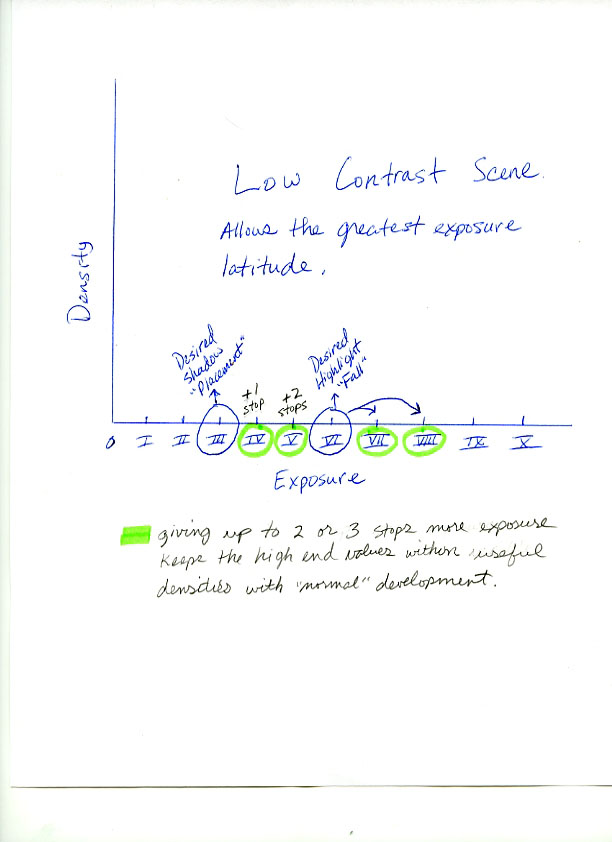 Low Contrast Scene
Allows the greatest exposure
latitude.
Density
Desired
Shadow
"Placement"
+1
stop
+2
stops
Desired
Highlight
"Fall"
0 I II III IV V VI VII VIII IX X
Exposure
giving up to 2 or 3 stops more exposure
keeps the high end values within useful
densities with "normal" development.